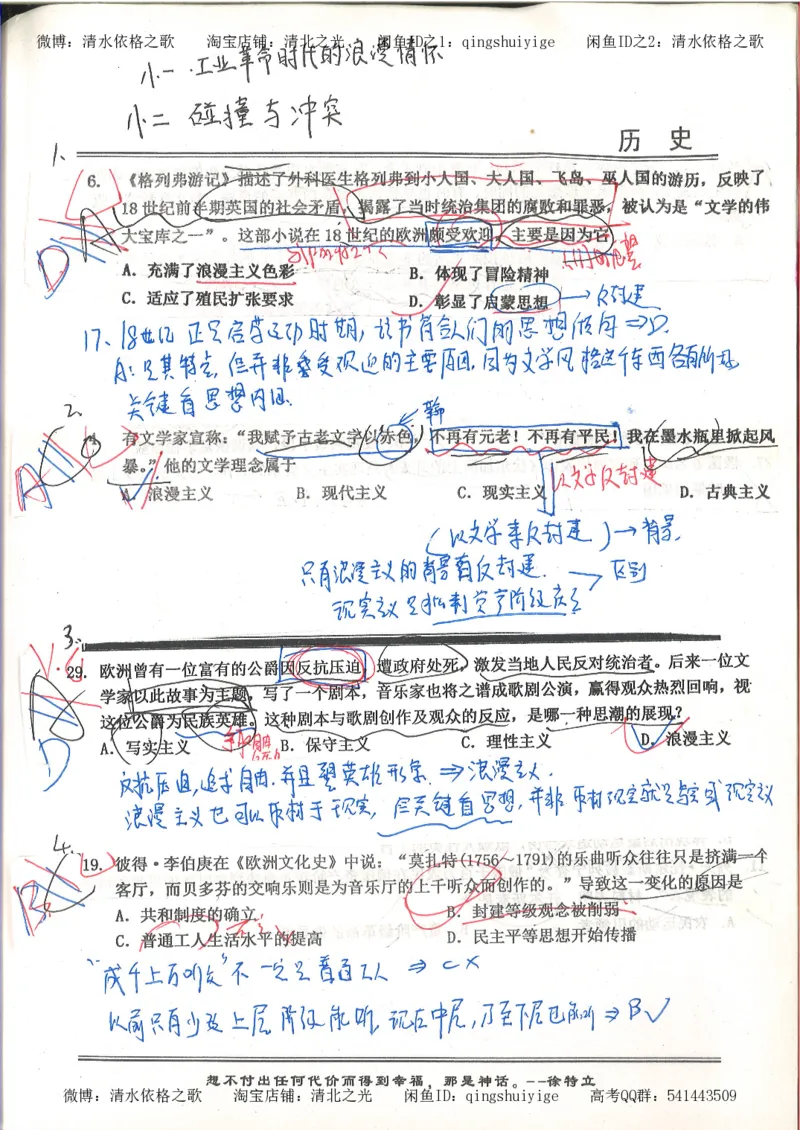 微博：清水依格之歌 淘宝店铺：清北之光 闲鱼ID之1：qingshuiyige 闲鱼ID之2：清水依格之歌
小一.工业革命时代的浪漫情怀
小二 碰撞与冲突
历 史
1、
6. 《格列弗游记》描述了外科医生格列弗到小人国、大人国、飞岛、巫人国的游历，反映了
18世纪前半期英国的社会矛盾，揭露了当时统治集团的腐败和罪恶，被认为是“文学的伟
大宝库之一”。这部小说在18世纪的欧洲颇受欢迎，主要是因为它
D
A．充满了浪漫主义色彩 B．体现了冒险精神
C．适应了殖民扩张要求 D．彰显了启蒙思想 → 反封建
17、18世纪正是启蒙运动时期，该书符合人们的思想倾向⇒D.
A：是其特点，但并非受欢迎的主要原因，因为文学风格这个东西各有所好
关键看思想内涵
2.
有文学家宣称：“我赋予古老文学以赤色，不再有元老！不再有平民！我在墨水瓶里掀起风
暴。”他的文学理念属于
A
以文学反封建
A．浪漫主义 B．现代主义 C．现实主义 D．古典主义
(以文学来反封建)→背景.
只有浪漫主义的背景有反封建. → 区别
现实主义是批判资产阶级
3.
29. 欧洲曾有一位富有的公爵因反抗压迫，遭政府处死，激发当地人民反对统治者。后来一位文
学家以此故事为主题，写了一个剧本，音乐家也将之谱成歌剧公演，赢得观众热烈回响，视
这位公爵为民族英雄。这种剧本与歌剧创作及观众的反应，是哪一种思潮的展现？
D
A．写实主义 B．保守主义 C．理性主义 D．浪漫主义
反抗压迫，追求自由.并且塑英雄形象.⇒浪漫主义.
浪漫主义也可以取材于现实，但关键看思想，并非取材现实就是写实或现实主义
4.
19. 彼得·李伯庚在《欧洲文化史》中说：“莫扎特(1756～1791)的乐曲听众往往只是挤满一个
客厅，而贝多芬的交响乐则是为音乐厅的上千听众而创作的。”导致这一变化的原因是
B
A．共和制度的确立 B．封建等级观念被削弱
C．普通工人生活水平的提高 D．民主平等思想开始传播
“成千上万听众”不一定是普通工人 ⇒ C×
以前只有少数上层阶级能听，现在中层，乃至下层也能听⇒B√
想不付出任何代价而得到幸福，那是神话。--徐特立
微博：清水依格之歌 淘宝店铺：清北之光 闲鱼ID：qingshuiyige 高考QQ群：541443509